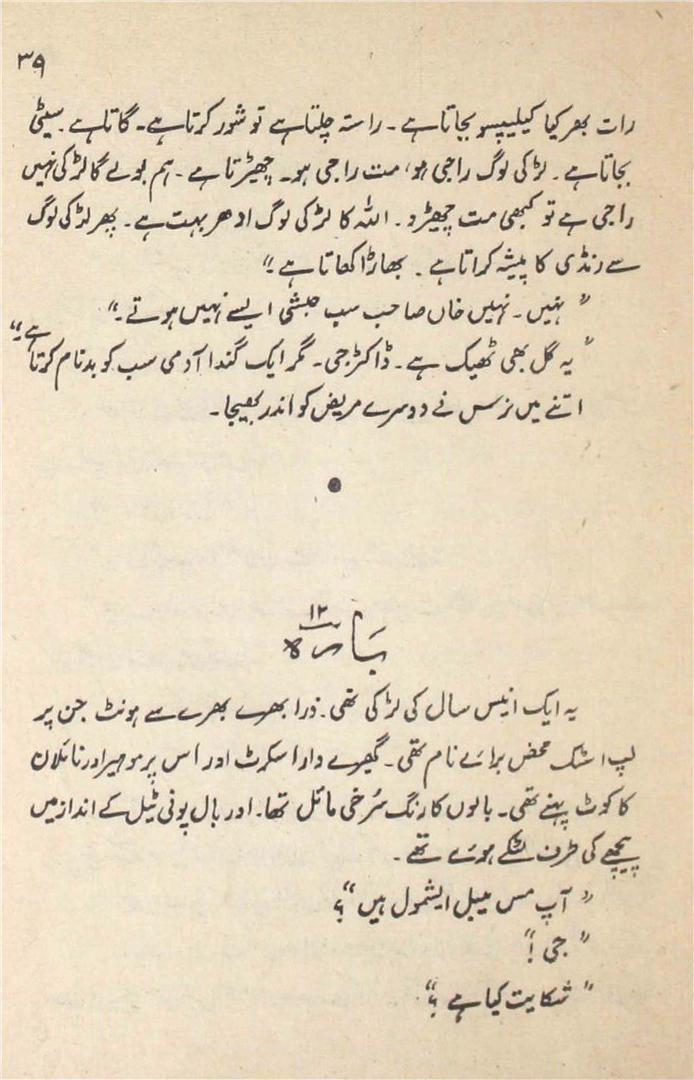 ۳۹
رات بھر کیا کیلیپسو بجاتا ہے۔ راستہ چلتا ہے تو شور کرتا ہے۔ گاتا ہے۔ سیٹی
بجاتا ہے۔ لڑکی لوگ راجی ہو، مت راجی ہو۔ چھیڑتا ہے۔ ہم بولے گا لڑکی نہیں
راجی ہے تو کبھی مت چھیڑو۔ اللہ کا لڑکی لوگ ادھر بہت ہے۔ پھر لڑکی لوگ
سے رنڈی کا پیشہ کراتا ہے۔ بھاڑا کھاتا ہے۔"
"نہیں۔ نہیں خاں صاحب سب حبشی ایسے نہیں ہوتے۔"
"یہ گل بھی ٹھیک ہے۔ ڈاکٹر جی۔ مگر ایک گندا آدمی سب کو بدنام کرتا ہے۔"
اتنے میں نرس نے دوسرے مریض کو اندر بھیجا۔
۱۲
بارہ
یہ ایک انیس سال کی لڑکی تھی۔ ذرا بھرے بھرے سے ہونٹ جن پر
لپ اسٹک محض برائے نام تھی۔ گھیرے دار اسکرٹ اور اس پر موہیر اور نائلان
کا کوٹ پہنے تھی۔ بالوں کا رنگ سُرخی مائل تھا۔ اور بال پونی ٹیل کے انداز میں
پیچھے کی طرف لٹکے ہوئے تھے۔
"آپ مس میبل ایشمول ہیں"؟
"جی!"
"شکایت کیا ہے؟"